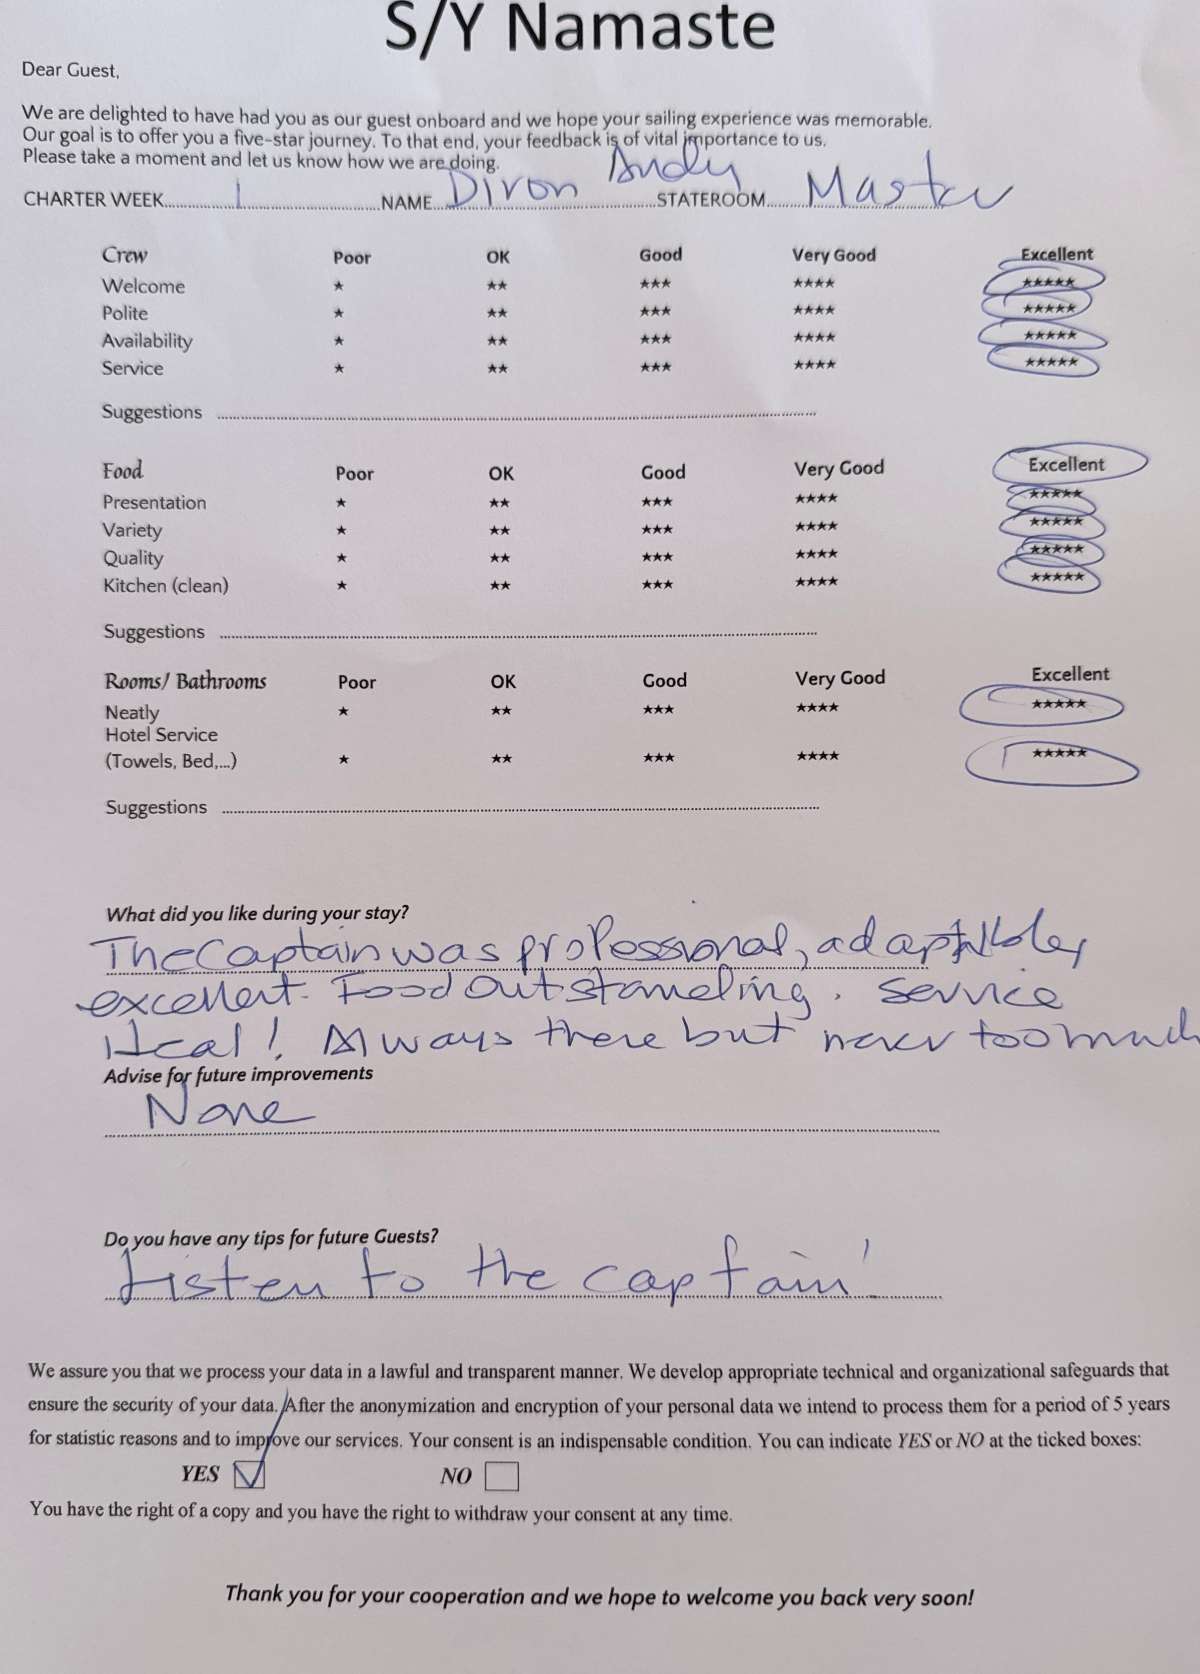 S/Y Namaste
Dear Guest,
We are delighted to have had you as our guest onboard and we hope your sailing experience was memorable.
Our goal is to offer you a five-star journey. To that end, your feedback is of vital importance to us.
Please take a moment and let us know how we are doing.
CHARTER WEEK 1 NAME Diron Andy STATEROOM Master
Crew Poor OK Good Very Good Excellent
Welcome ★ ★★ ★★★ ★★★★ ★★★★★
Polite ★ ★★ ★★★ ★★★★ ★★★★★
Availability ★ ★★ ★★★ ★★★★ ★★★★★
Service ★ ★★ ★★★ ★★★★ ★★★★★
Suggestions
Food Poor OK Good Very Good Excellent
Presentation ★ ★★ ★★★ ★★★★ ★★★★★
Variety ★ ★★ ★★★ ★★★★ ★★★★★
Quality ★ ★★ ★★★ ★★★★ ★★★★★
Kitchen (clean) ★ ★★ ★★★ ★★★★ ★★★★★
Suggestions
Rooms/ Bathrooms Poor OK Good Very Good Excellent
Neatly ★ ★★ ★★★ ★★★★ ★★★★★
Hotel Service
(Towels, Bed,...) ★ ★★ ★★★ ★★★★ ★★★★★
Suggestions
What did you like during your stay?
The Captain was professional, adaptable,
excellent. Food outstanding. Service
Ideal! Always there but never too much
Advise for future improvements
None
Do you have any tips for future Guests?
Listen to the captain!
We assure you that we process your data in a lawful and transparent manner. We develop appropriate technical and organizational safeguards that
ensure the security of your data. After the anonymization and encryption of your personal data we intend to process them for a period of 5 years
for statistic reasons and to improve our services. Your consent is an indispensable condition. You can indicate YES or NO at the ticked boxes:
YES NO
You have the right of a copy and you have the right to withdraw your consent at any time.
Thank you for your cooperation and we hope to welcome you back very soon!